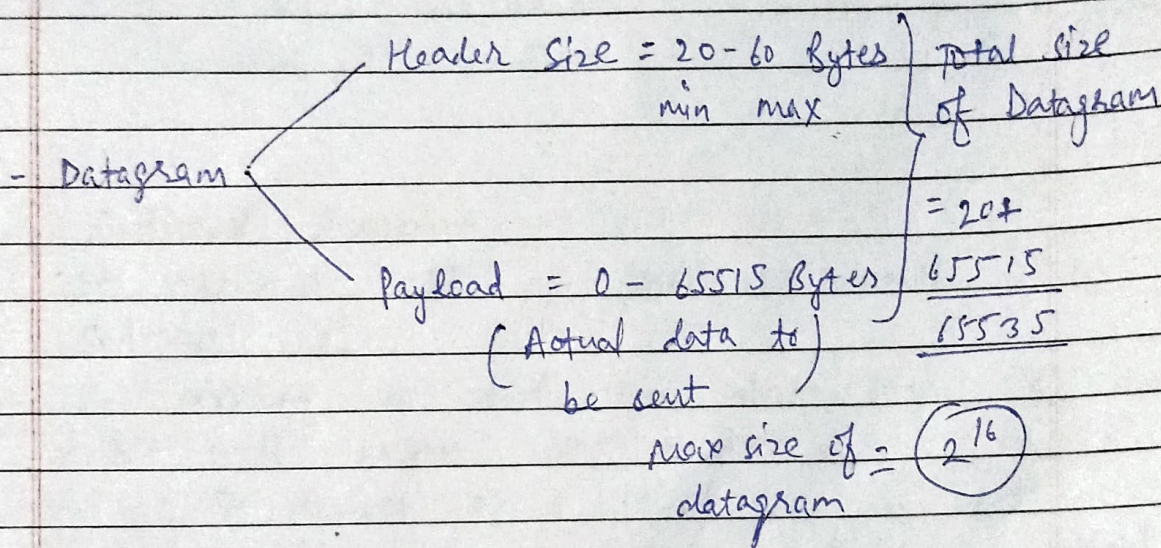 Header Size = 20-60 Bytes
min max
Total Size
of Datagram
- Datagram
= 20+
65515
65535
Payload = 0 - 65515 Bytes
(Actual data to)
be sent
Max size of = 2^16
datagram